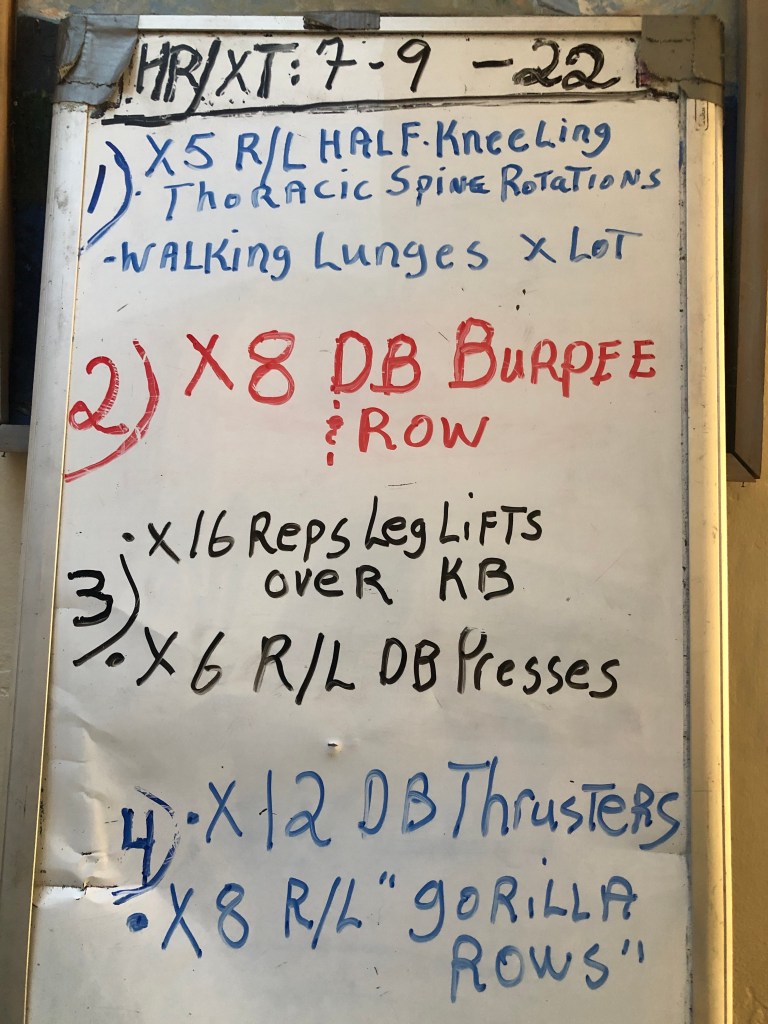 HR/XT: 7-9-22
1) · X5 R/L HALF-KneeLing
ThoRAcic SpiNE RoTATIoNS
-WALKing Lunges X LoT
2) X8 DB BuRPEE
& ROW
3) · X16 Reps Leg LiFTS
oveR KB
· X6 R/L DB Presses
4) · X12 DB ThrusTeRS
· X8 R/L "goRiLLA
ROWS"